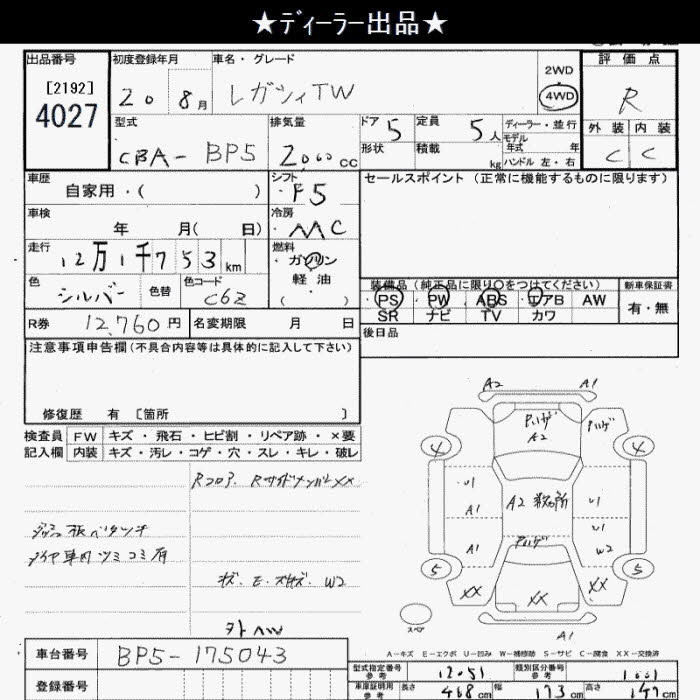 ★ディーラー出品★
出品番号
[2192]
4027
初度登録年月
20 8月
車名・グレード
レガシィTW
2WD
4WD
評価点
R
外装 内装
C C
型式
CBA-BP5
排気量
2000cc
ドア 5
形状
定員 5人
積載 kg
ディーラー・並行
モデル年式 年
ハンドル 左・右
車歴
自家用・( )
シフト
F5
セールスポイント(正常に機能するものに限ります)
車検
年 月( 日)
冷房
走行
12万1千753km
燃料
ガソリン
・
軽油
( )
色
シルバー
色替
色コード
C6Z
装備品(純正品に限り○をつけてください)
PS PW ABS エアB AW
SR ナビ TV カワ
新車保証書
有・無
R券 12,760円
名変期限 月 日
後日品
注意事項申告欄(不具合内容等は具体的に記入して下さい)
修復歴 有〔箇所 〕
検査員記入欄
FW キズ・飛石・ヒビ割・リペア跡・×要
内装 キズ・汚レ・コゲ・穴・スレ・キレ・破レ
Rフロア. RサイドメンバーXX
W2
A2 A1
A2
4 4
U1
A1
A2
U1
U1
A1
W2
5 5
XX XX XX
A1
スペア
A-キズ E-エクボ U-凹み W-補修跡 S-サビ C-腐食 XX-交換済
車台番号 BP5-175043
登録番号
型式指定番号 参考 12051
類別区分番号 参考
車庫証明用 参考 長さ 468cm 幅 173cm 高さ 147cm